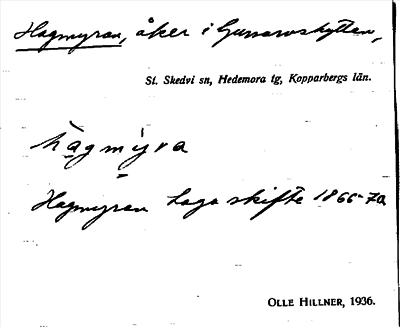 Hagmyran, åker i Gussarvshyttan,
St. Skedvi sn, Hedemora tg, Kopparbergs län.
hagmýra
Hagmyran Laga skifte 1866-70
OLLE HILLNER, 1936.